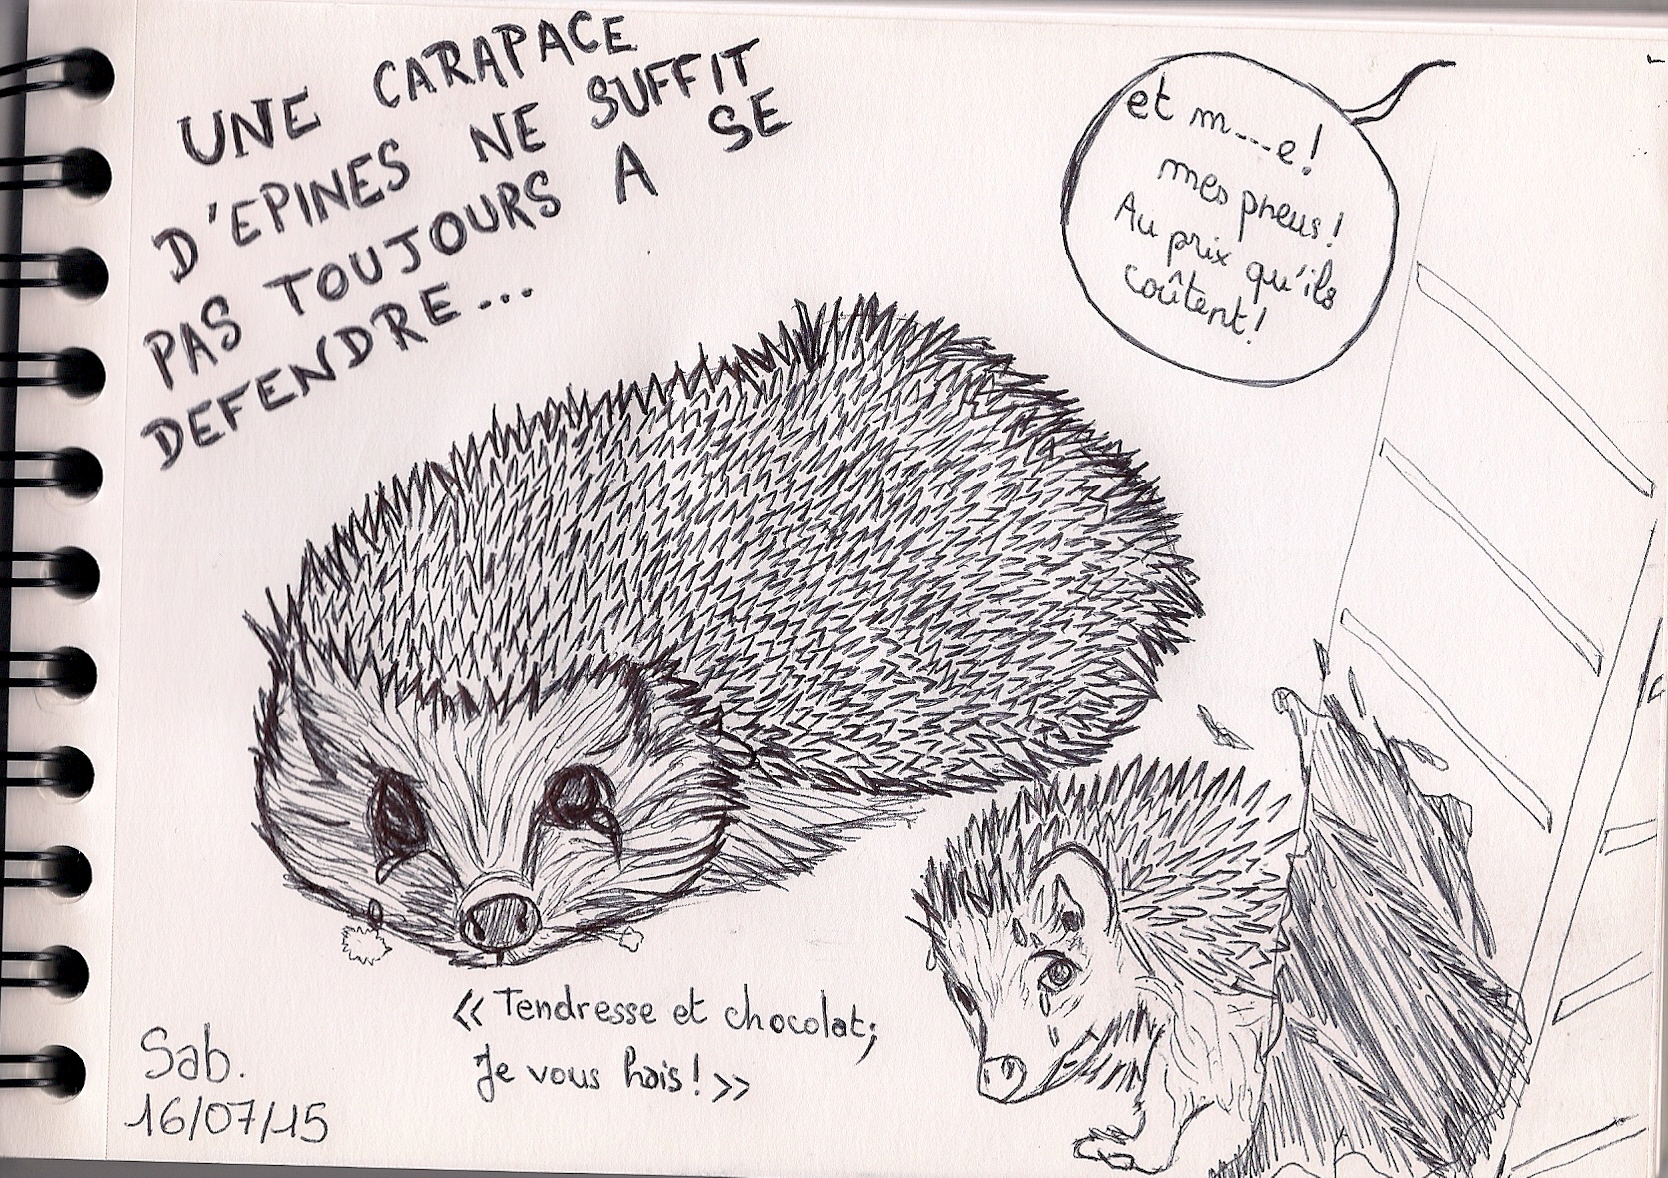 UNE CARAPACE
D'EPINES NE SUFFIT
PAS TOUJOURS A SE
DEFENDRE...
et m---e!
mes pneus!
Au prix qu'ils
coûtent!
« Tendresse et chocolat;
Je vous hais! »
Sab.
16/07/15